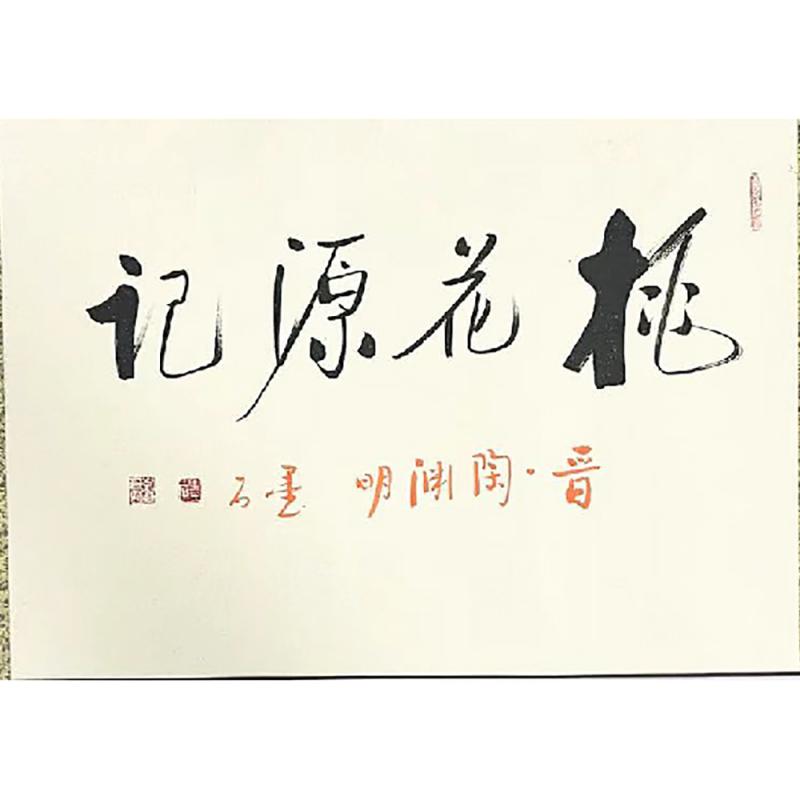 桃花源记
晋·陶渊明 墨石